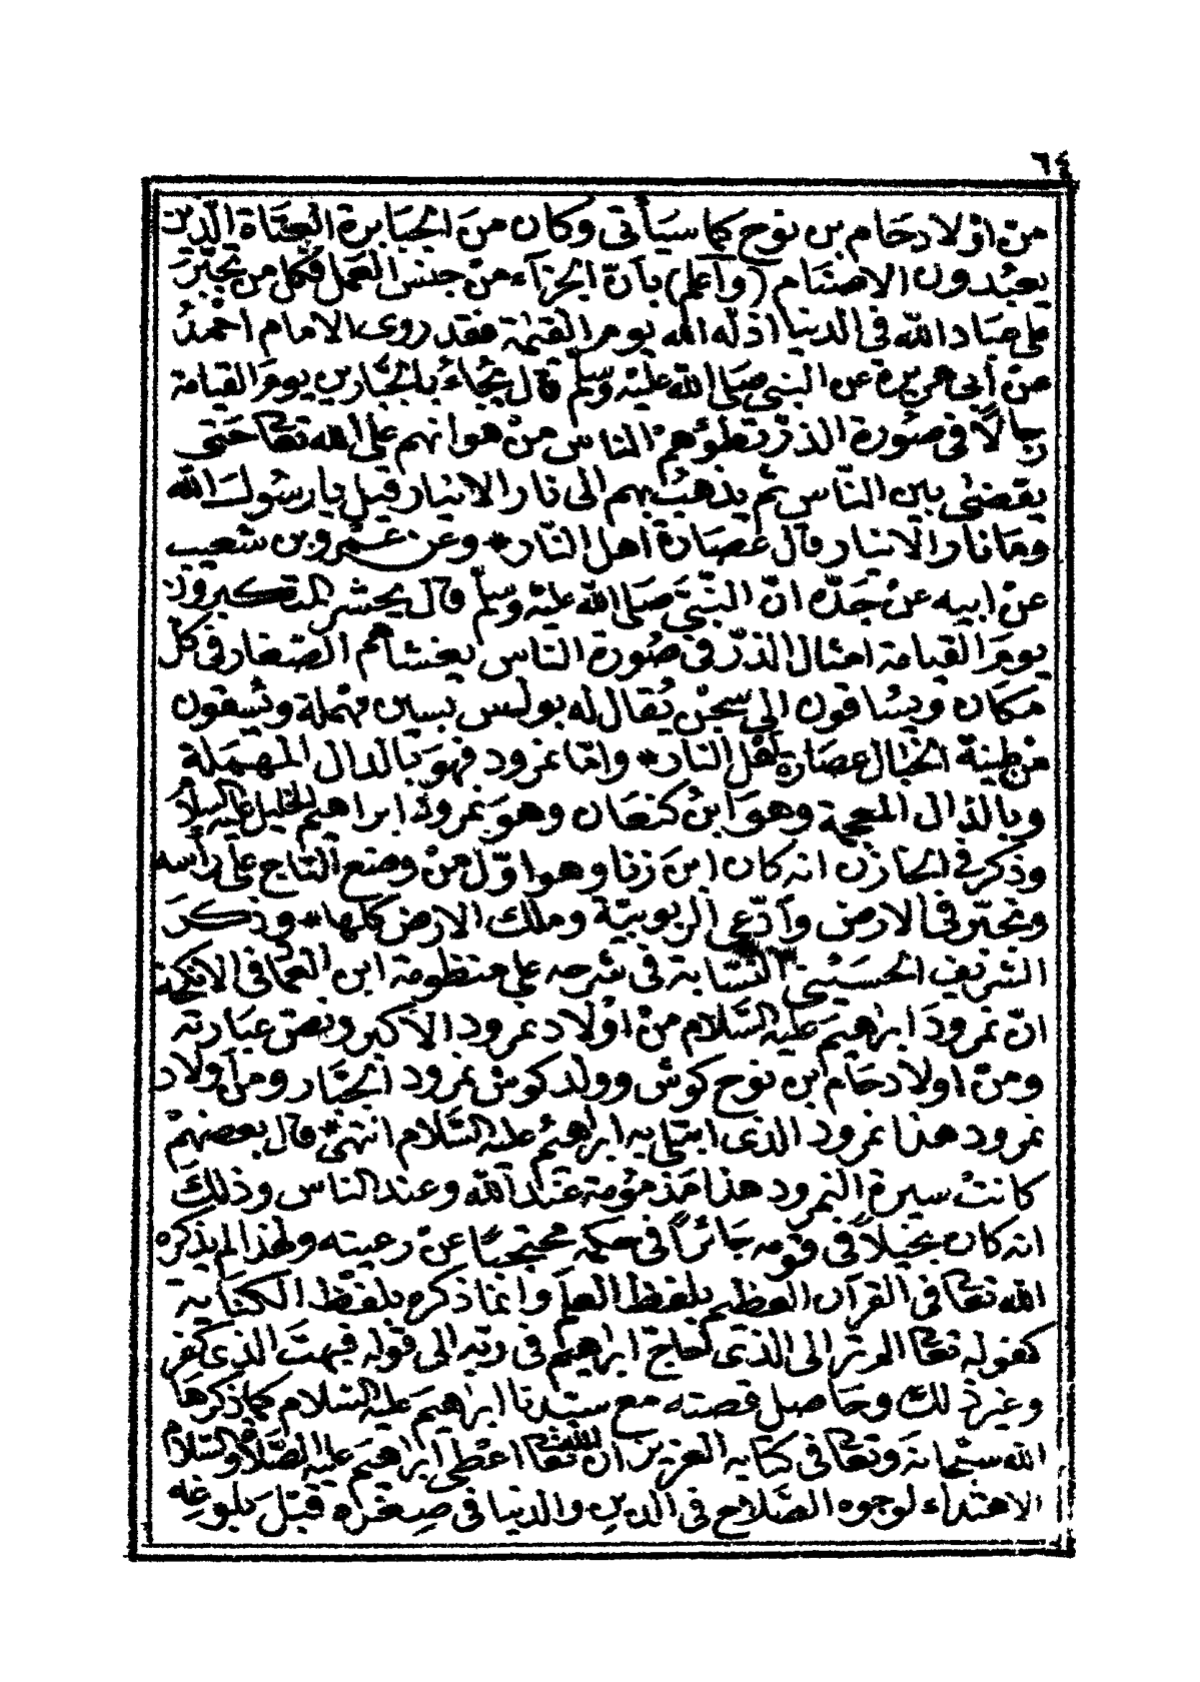 ٦٤
من اولاد حام بن نوح كما سيأتى وكان من الجبابرة العتاة الذين
يعبدون الاصنام (واعلم) بأن الجزآء من جنس العمل فكل من تجبّر
على عباد الله فى الدنيا اذله الله يوم القيمة فقد روى الامام احمد
عن أبى هريرة عن النبى صلى الله عليه وسلم قال يجاء بالجبارين يوم القيامة
رجالاً فى صورة الذرّ تطؤهم الناس من هوانهم على الله تعا حتى
يقضى بين النّاس ثم يذهب بهم الى نار الانيار قيل يا رسول الله
وما نار الانيار قال عصارة اهل النّار * وعن عمرو بن شعيب
عن ابيه عن جدّه انّ النبىّ صلى الله عليه وسلّم قال يحشر المتكبرون
يوم القيامة امثال الذرّ فى صورة الناس يغشاهم الصغار فى كل
مكان ويساقون الى سجن يُقال له بولس بسين مهملة ويسقون
من طينة الخبال عصارة اهل النار * وامّا نمرود فهو بالدال المهملة
وبالذال المعجمة وهو ابن كنعان وهو نمروذ ابراهيم الخليل عليه السلام
وذكر فى الخازن انه كان ابن زنا وهو اوّل من وضع التاج على رأسه
وتجبّر فى الارض وآدّعى الربوبيّة وملك الارض كلها * وذكر
الشريف الحسينى النسّابة فى شرحه على منظومة ابن العماد فى الانكحة
انّ نمرود ابراهيم عليه السّلام من اولاد نمرود الأكبر ونصّ عبارته
ومن اولاد حام ابن نوح كوش وولد كوش نمرود الجبّار ومن آولاد
نمرود هذا نمرود الذى ابتلى به ابراهيم عليه السّلام انتهى * قال بعضهم
كانت سيرة النمرود هذا مذمومة عند الله وعند الناس وذلك
انه كان بخيلاً فى قومه جائراً فى حكمه محتجبًا عن رعيته ولهذا لم يذكره
الله تعا فى القرآن العظيم بلفظ العلم وانما ذكره بلفظ الكناية
كقوله تعا الم تر الى الذى حاج ابراهيم فى ربه الى قوله فبهت الذى كفر
وغير ذلك وحاصل قصته مع سيدنا ابراهيم عليه السلام كما ذكرها
الله سبحانه وتعا فى كتابه العزيز ان الله تعا اعطى ابراهيم عليه الصّلاة والسّلام
الاهتداء لوجوه الصّلاح فى الدين والدنيا فى صغره قبل بلوغه